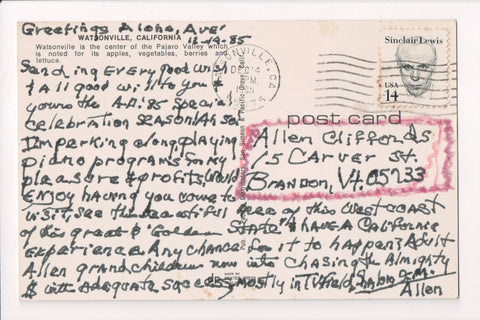 Greetings Aloha, Ave!
12-14-85
WATSONVILLE, CALIFORNIA
Watsonville is the center of the Pajaro Valley which
is noted for its apples, vegetables, berries and
lettuce.
WATSONVILLE, CA
DEC 14
Sinclair Lewis
USA
14
post card
Sending EVERY good wish
& all good will to you &
yours the A.D. '85 Special
celebration SEASON! Ah So!
I'm perking along playing
piano programs for my
pleasure & profits, would
ENJOY having you come to
visit, see the beautiful area of this West Coast
of this great "Golden State" & HAVE A California
Experience. Any chance for it to happen? Adult
Allen grandchildren now into Chasing the Almighty
$ with adequate success, mostly in TV field
Allen
Allen Cliffords
15 Carver St.
Brandon, Vt. 05733